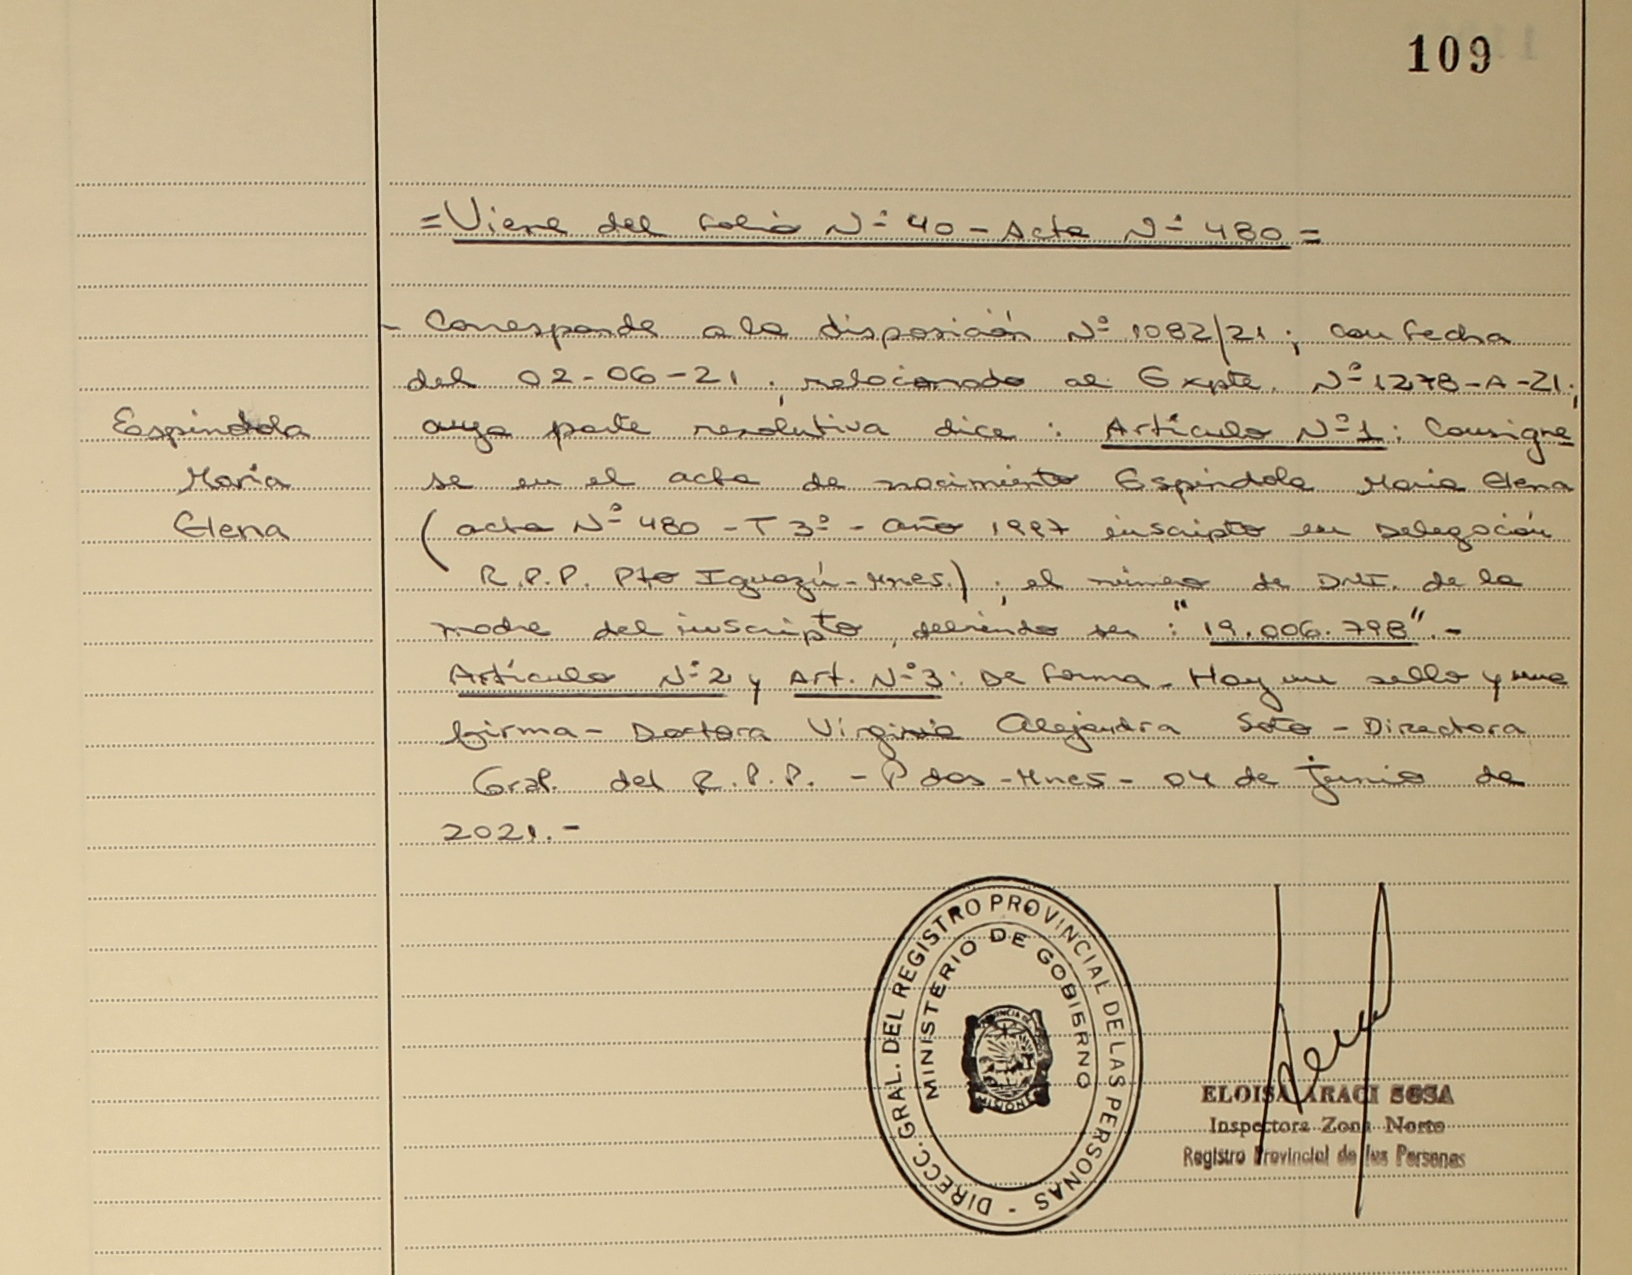 109
= Viene del folio Nº 40 - Acta Nº 480 =
- Corresponde a la disposición Nº 1082/21; con fecha
del 02-06-21, relacionado al Expte. Nº 1278-A-21;
cuya parte resolutiva dice: Artículo Nº 1: Consigne
Espindola
se en el acta de nacimiento Espindola Maria Elena
María
(acta Nº 480 - T 3º - año 1997 inscripto en Delegación
Elena
R.P.P. Pto Iguazú - Mnes.); el número de DNI. de la
madre del inscripto, debiendo ser: "19.006.798".-
Artículo Nº 2 y Art. Nº 3: De forma - Hay un sello y una
firma - Doctora Virginia Alejandra Soto - Directora
Gral. del R.P.P. - Pdas - Mnes - 04 de junio de
2021.-
DIRECC. GRAL. DEL REGISTRO PROVINCIAL DE LAS PERSONAS -
MINISTERIO DE GOBIERNO
PROVINCIA DE
MISIONES
ELOISA ARACI SOSA
Inspectora Zona Norte
Registro Provincial de las Personas